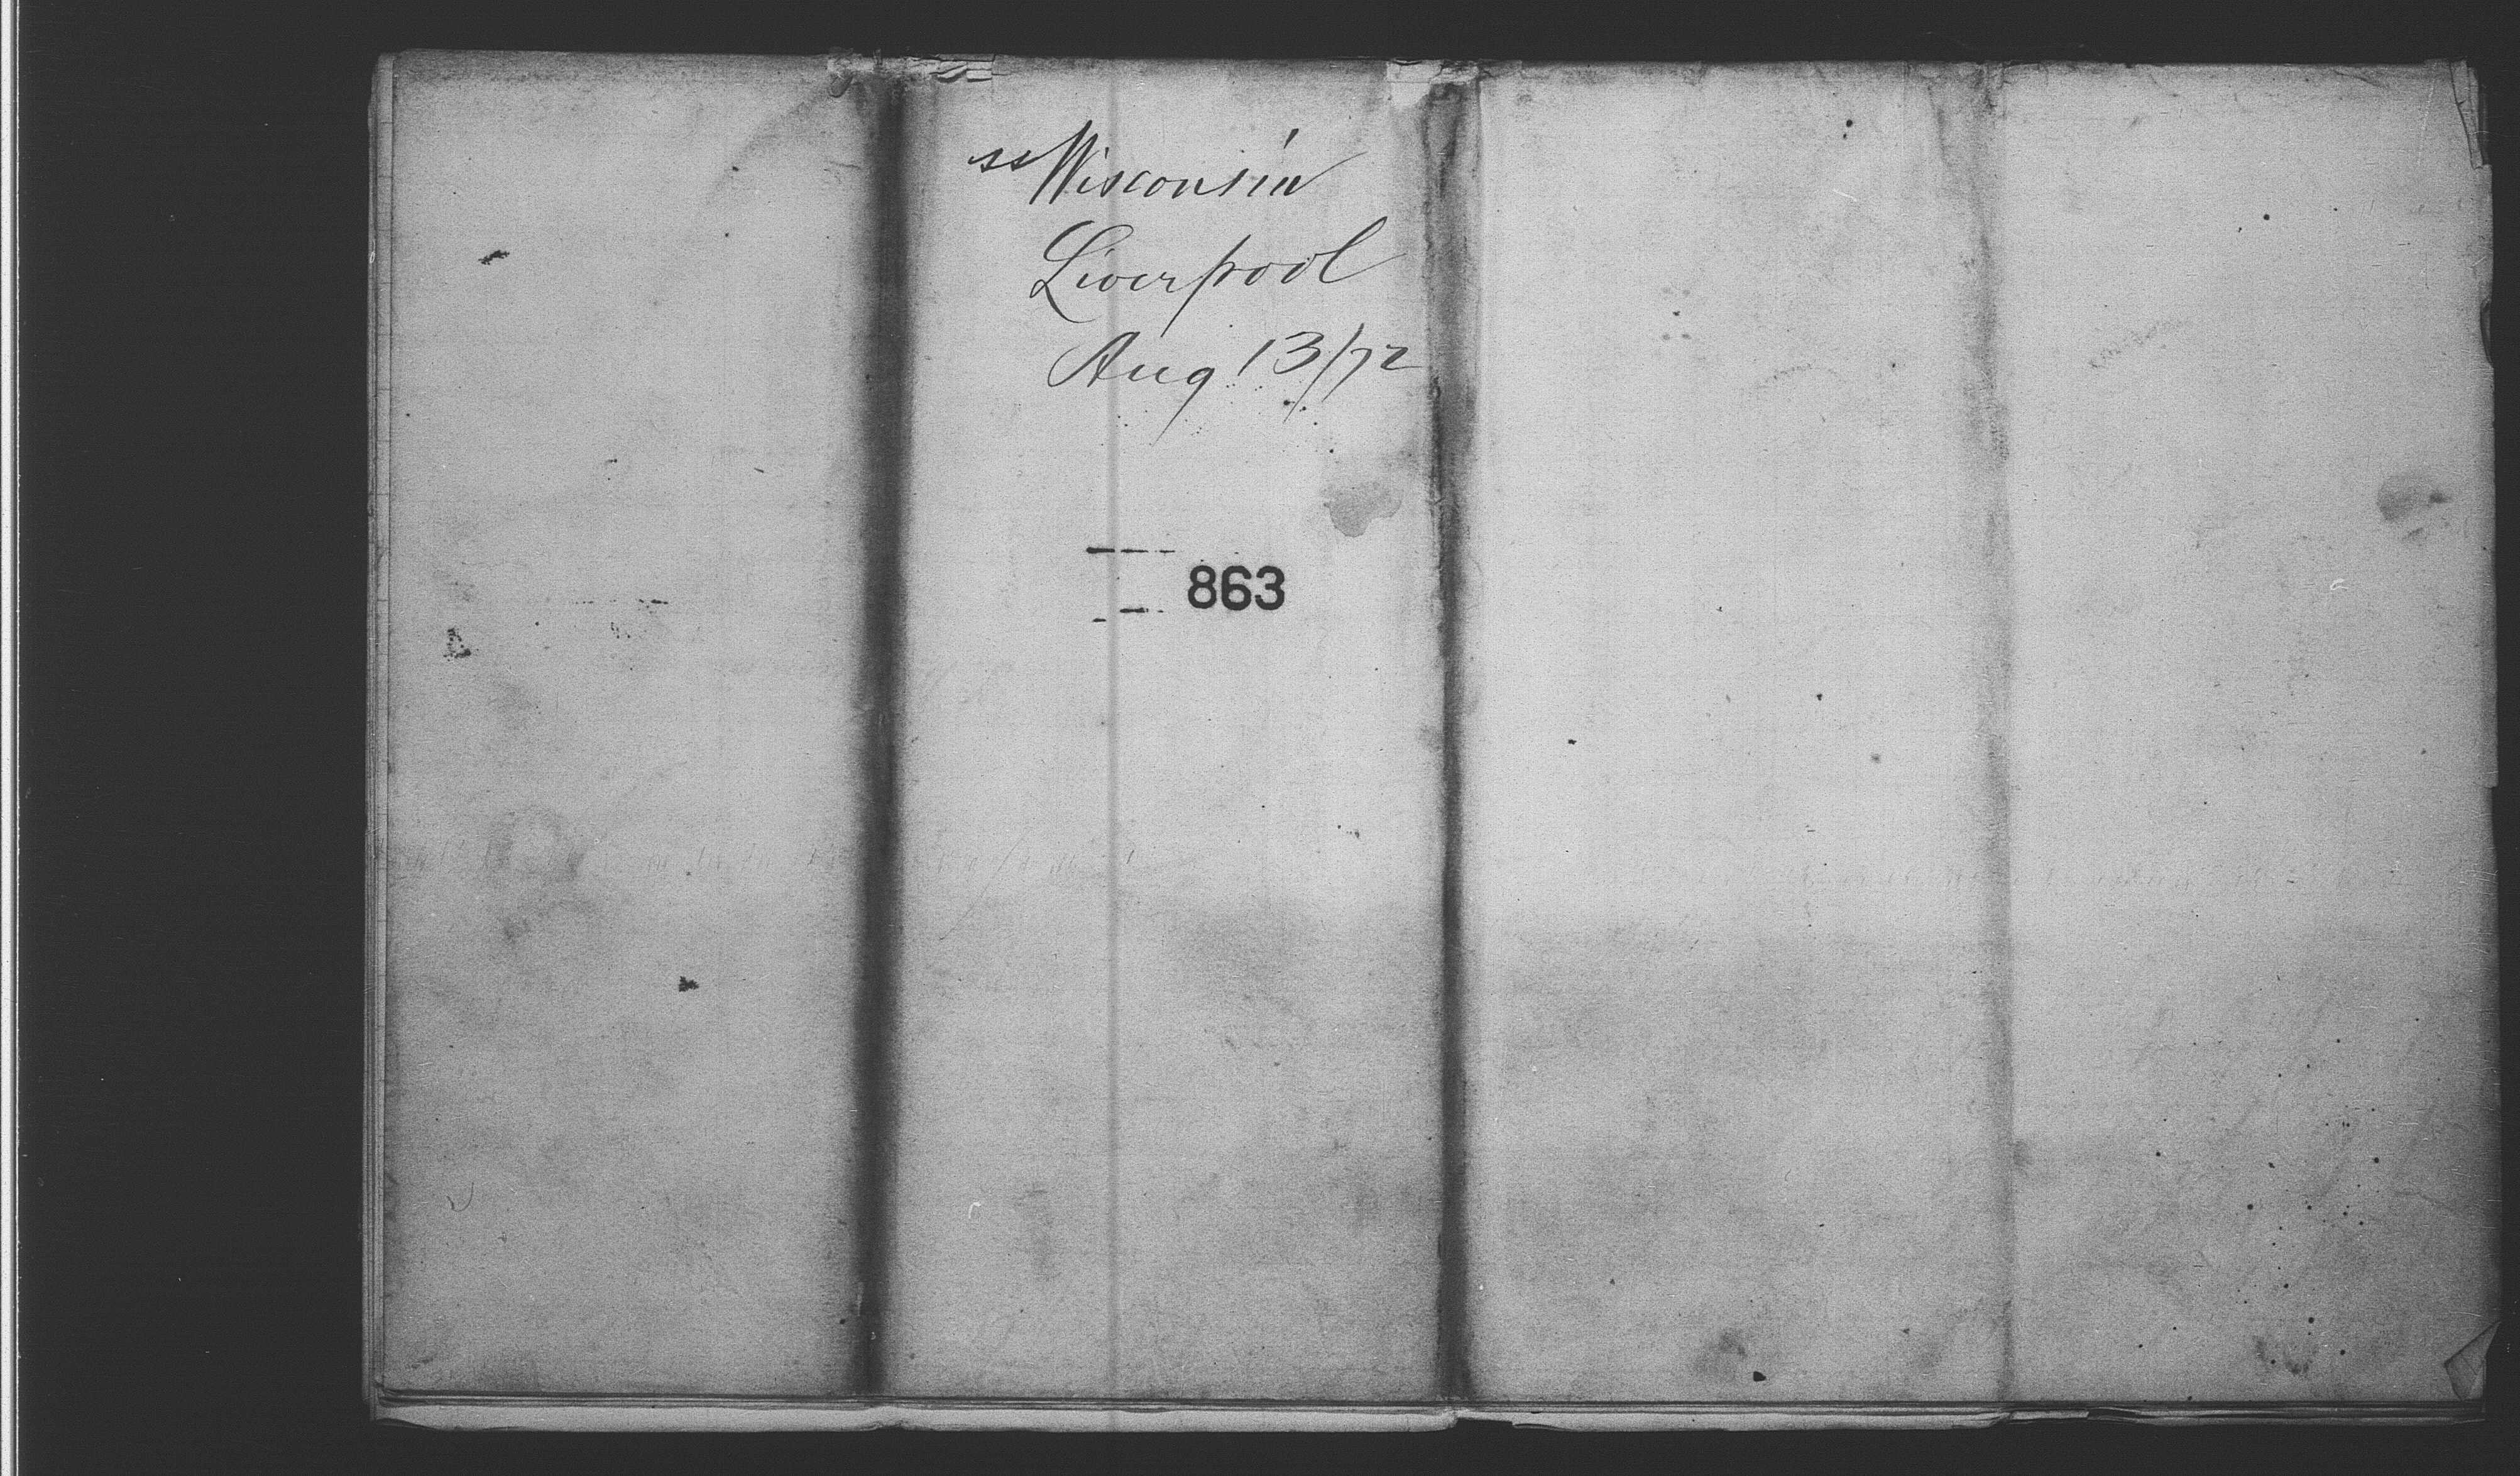 ss Wisconsin
Liverpool
Aug 13/72
863